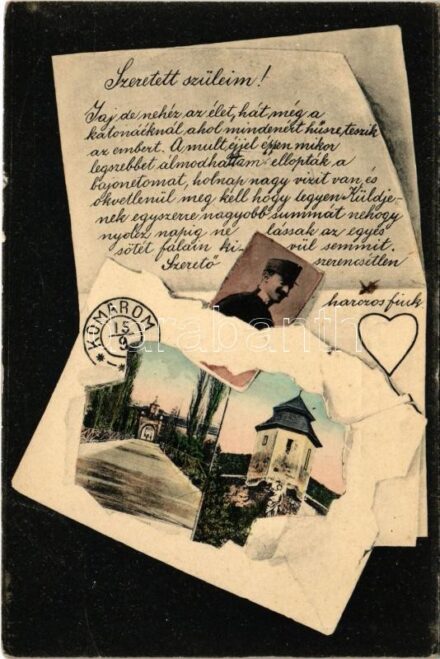 Szeretett szüleim!
Jaj de nehéz az élet, hát még a
katonáéknál ahol mindenért hűsre teszik
az embert. A mult éjjel épen mikor
legszebbet álmodhattam ellopták a
bajonetomat, holnap nagy vizit van és
okvetlenül meg kell hogy legyen. Küldje-
nek egyszerre nagyobb summát nehogy
nyolcz napig ne lássak az egyes
sötét falain kivül semmit.
Szerető szerencsétlen
harczos fiuk
*KOMÁROM*
15/9
darabanth